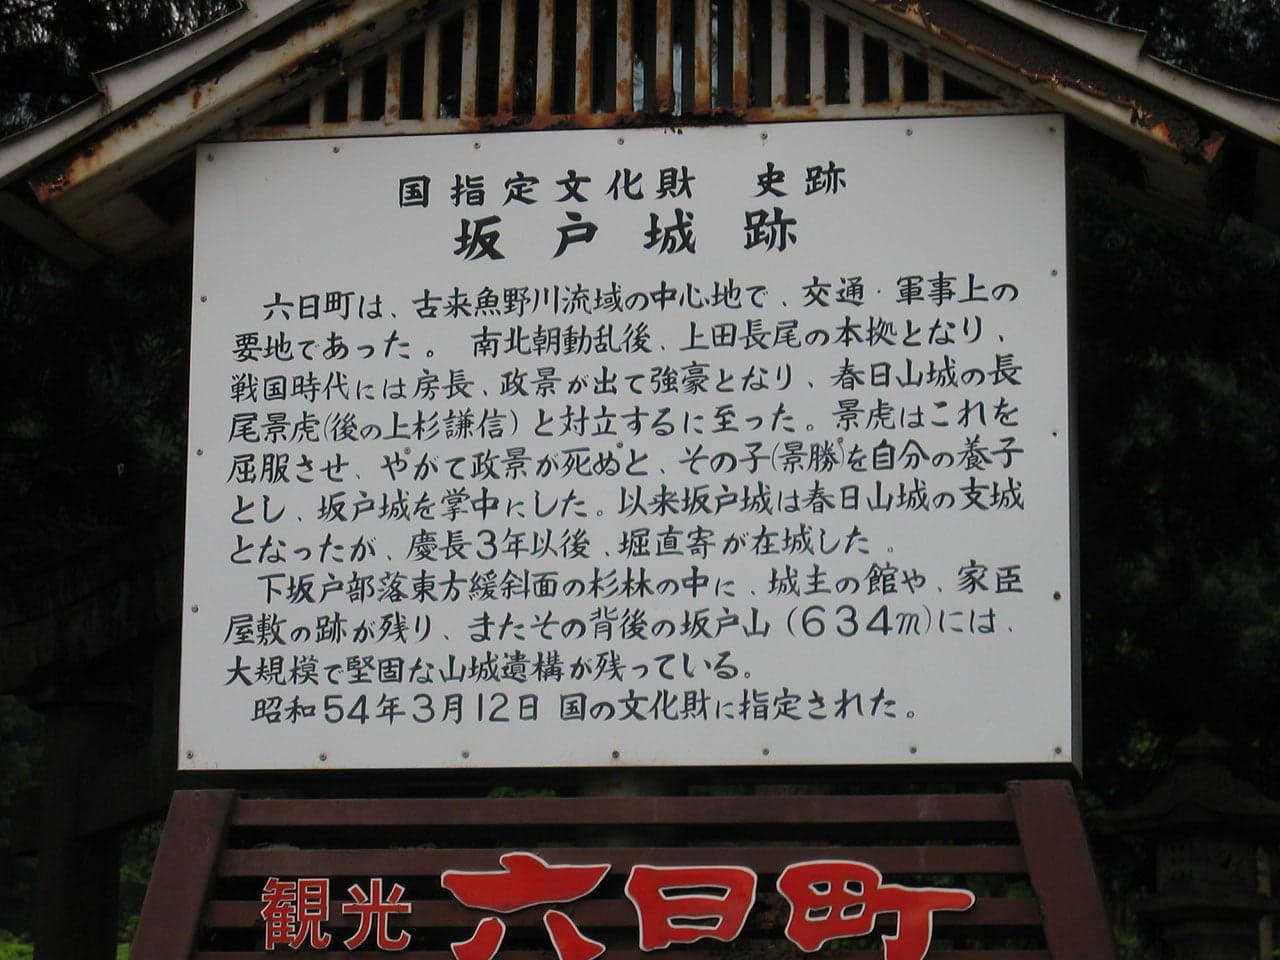 国指定文化財　史跡
坂戸城跡
六日町は、古来魚野川流域の中心地で、交通・軍事上の
要地であった。南北朝動乱後、上田長尾の本拠となり、
戦国時代には房長、政景が出て強豪となり、春日山城の長
尾景虎(後の上杉謙信)と対立するに至った。景虎はこれを
屈服させ、やがて政景が死ぬと、その子(景勝)を自分の養子
とし、坂戸城を掌中にした。以来坂戸城は春日山城の支城
となったが、慶長3年以後、堀直寄が在城した。
下坂戸部落東方緩斜面の杉林の中に、城主の館や、家臣
屋敷の跡が残り、またその背後の坂戸山(634m)には、
大規模で堅固な山城遺構が残っている。
昭和54年3月12日 国の文化財に指定された。
観光 六日町